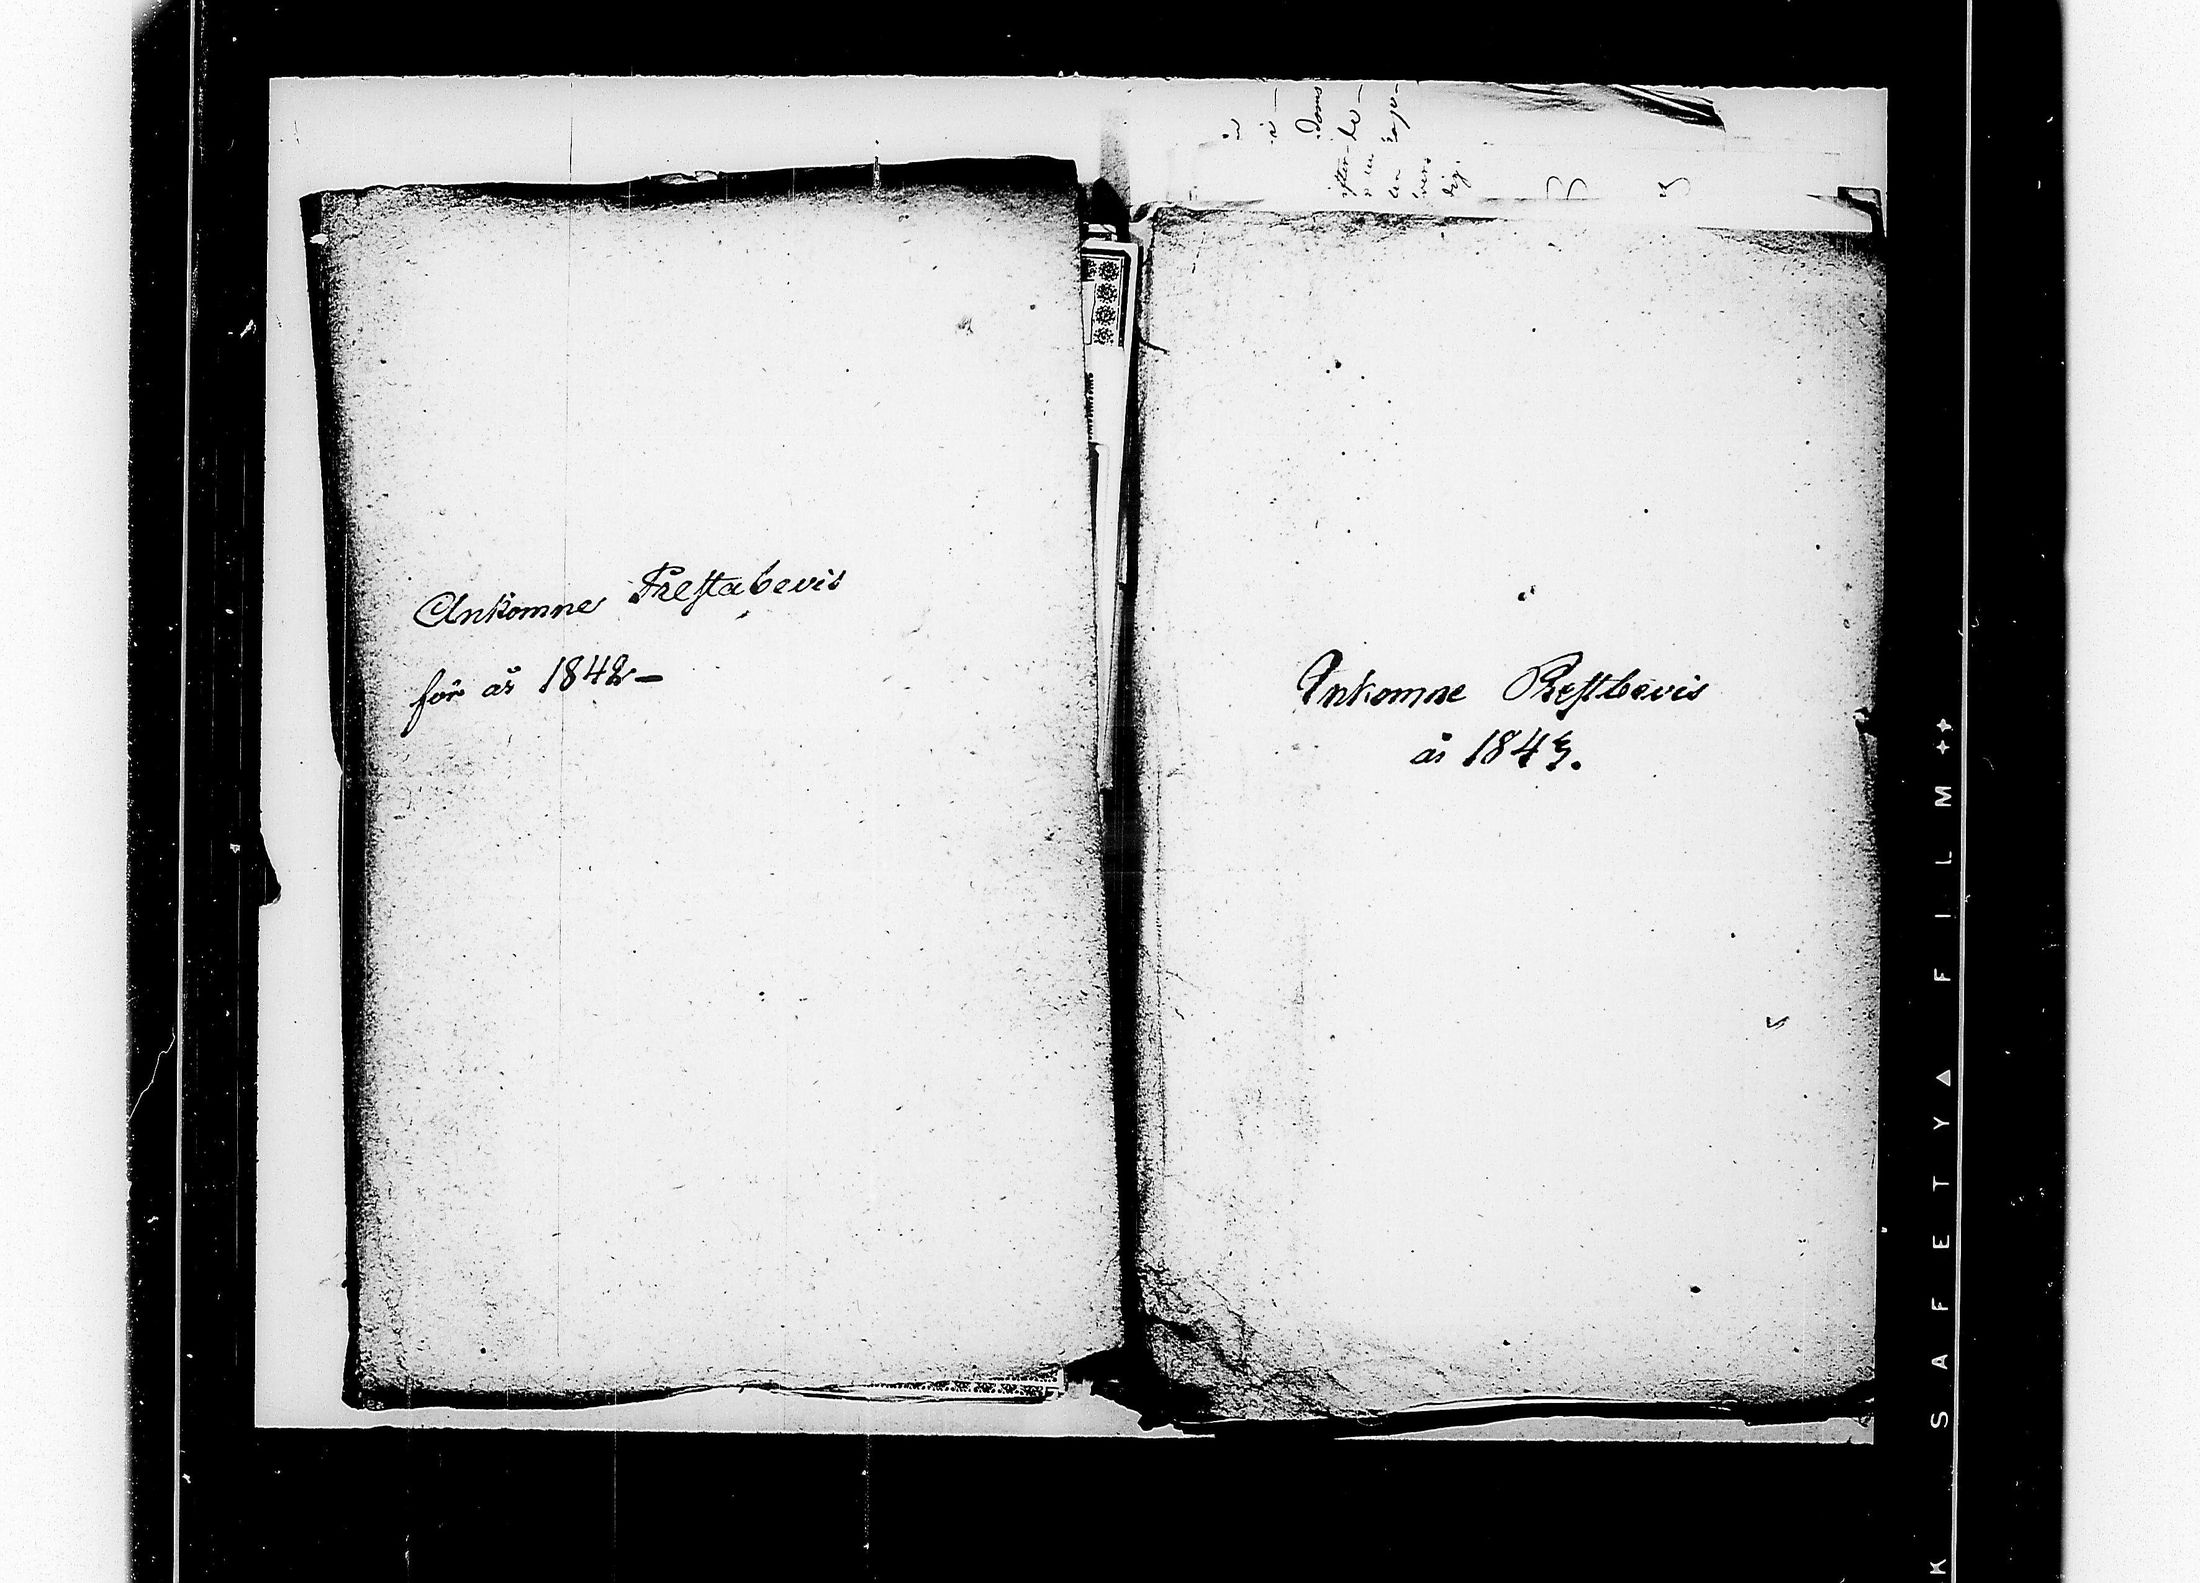 Ankomne Prestabevis
för år 1842 –
Ankomne Prestbevis
år 1843.
K SAFETY▲FILM ++